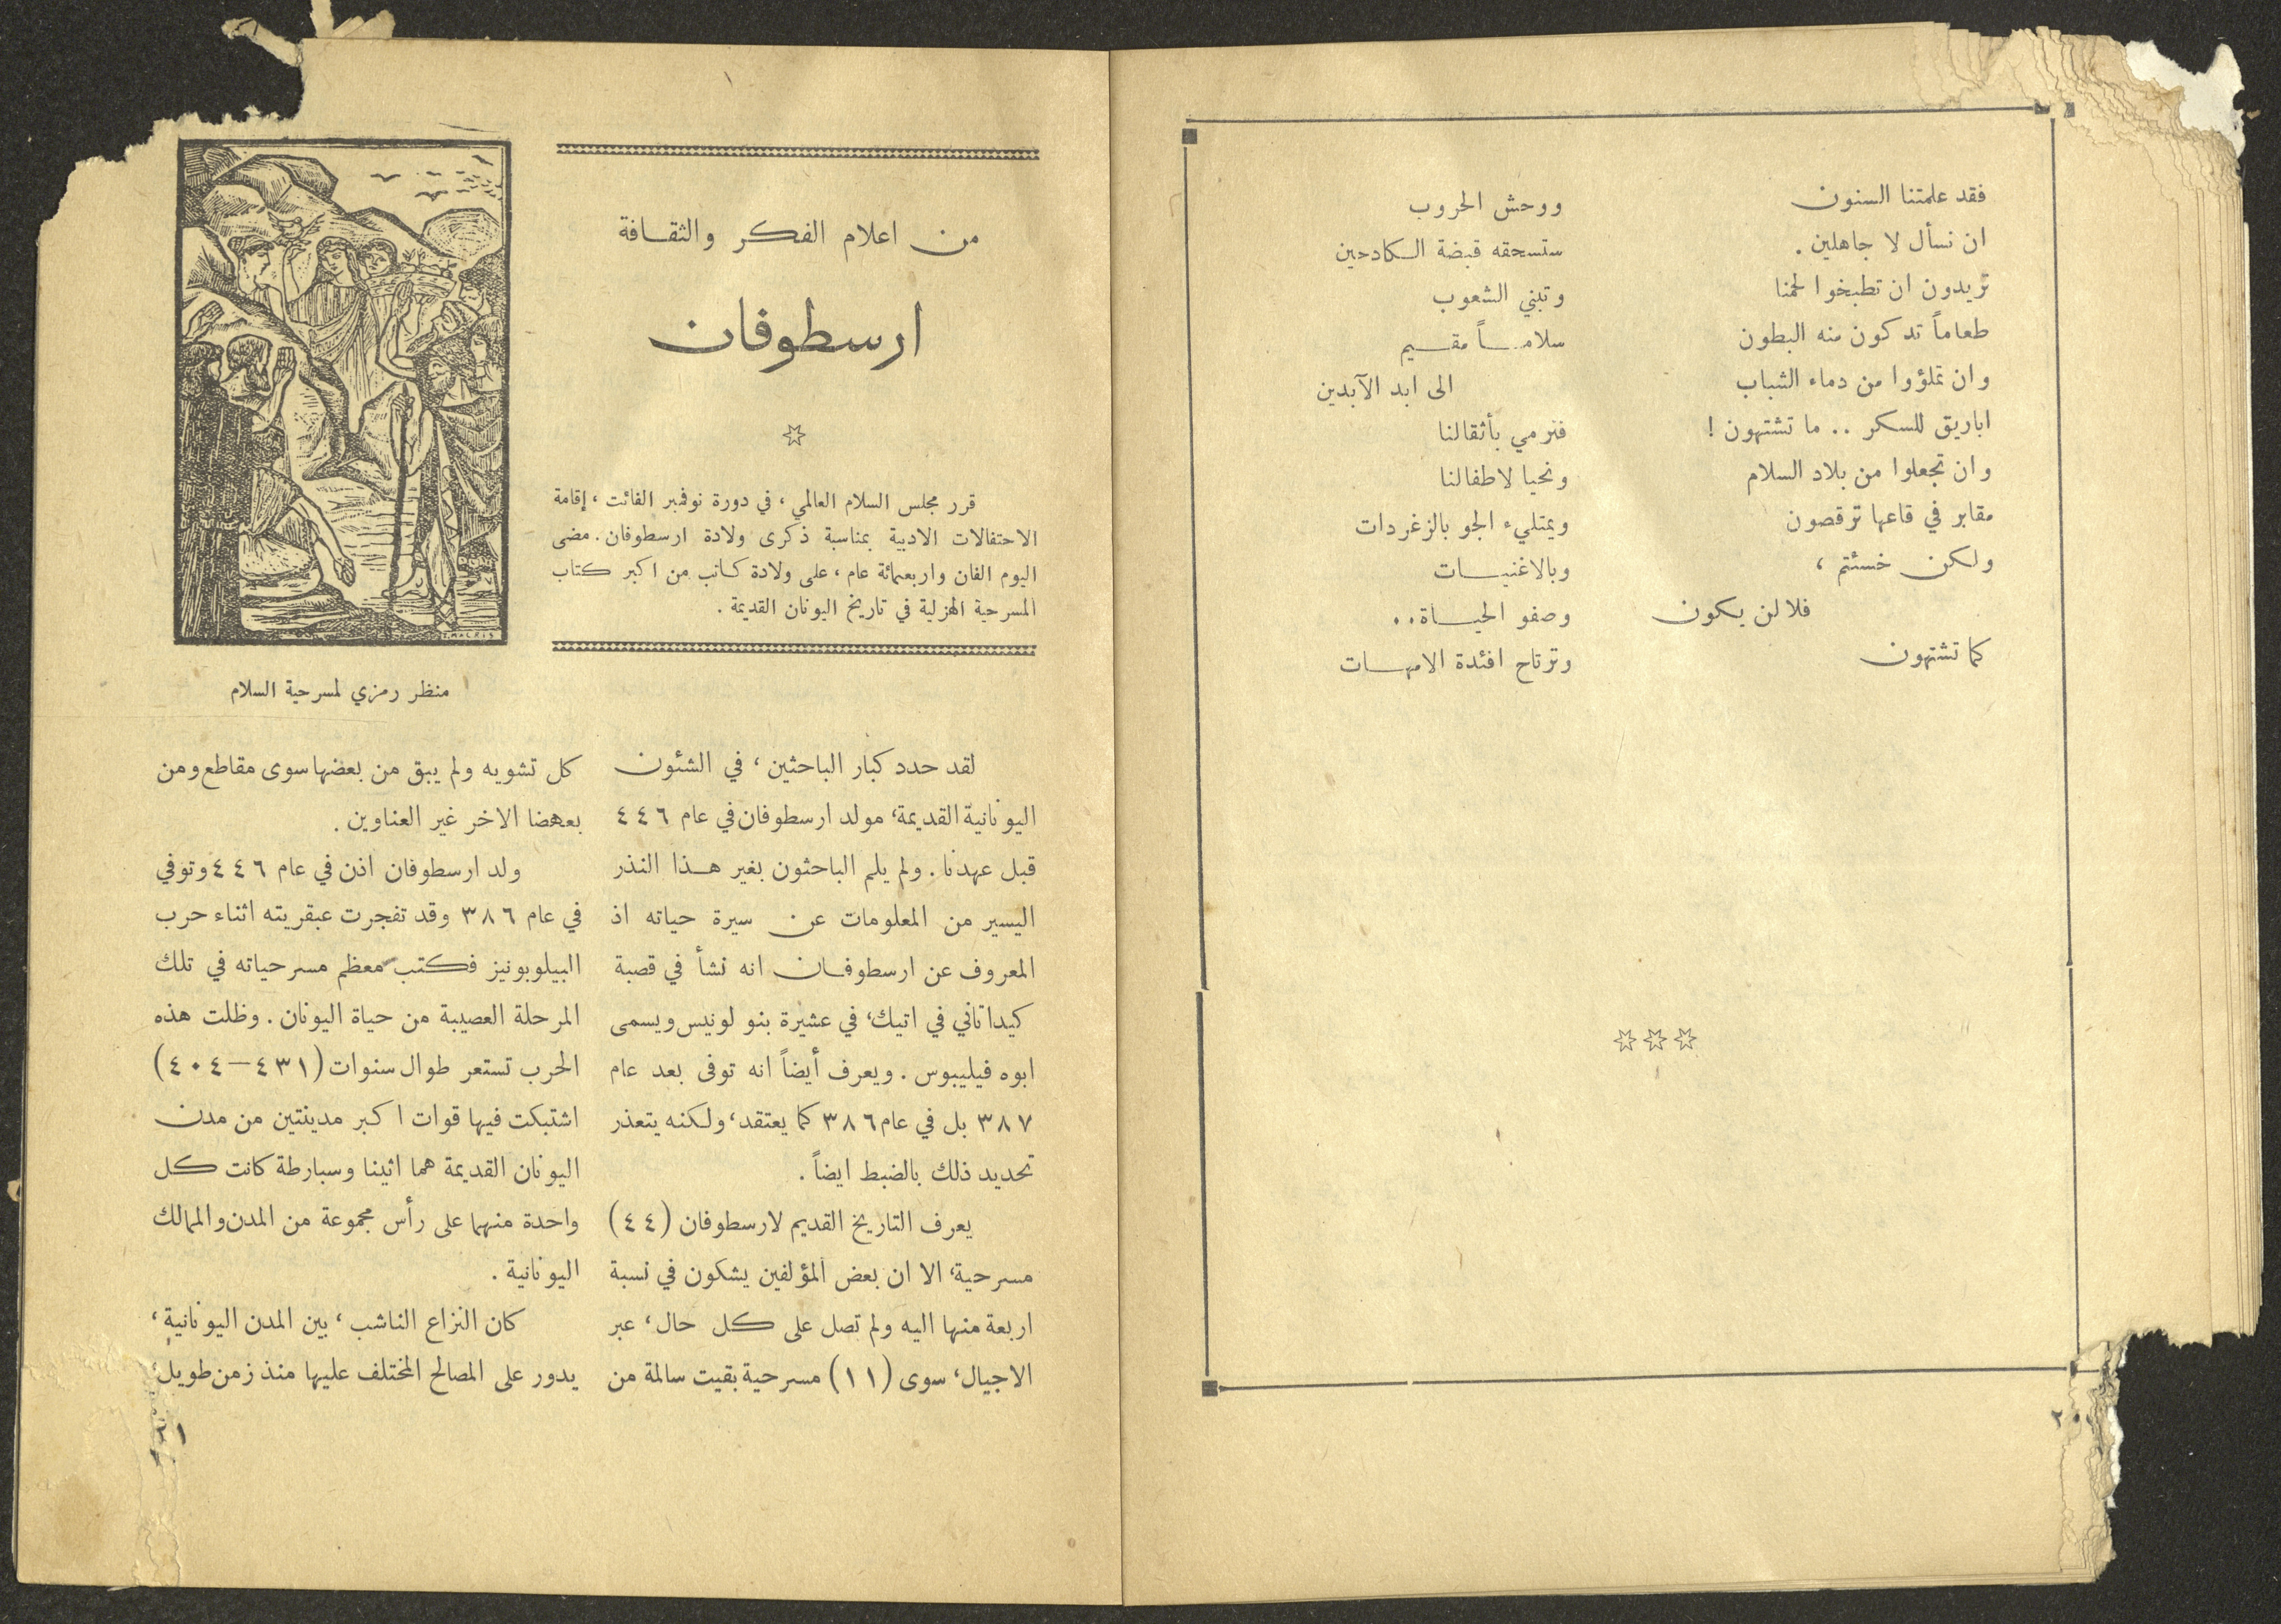 فقد علمتنا السنون
ان نسأل لا جاهلين .
تريدون ان تطبخوا لحمنا
طعاماً تدكون منه البطون
وان تملؤوا من دماء الشباب
اباريق للسكر .. ما تشتهون !
وان تجعلوا من بلاد السلام
مقابر في قاعها ترقصون
ولكن خسئتم ،
فلا لن يكون
كما تشتهون
ووحش الحروب
ستسحقه قبضة الكادحين
وتبني الشعوب
سلاماً مقيم
الى ابد الآبدين
فنرمي بأثقالنا
ونحيا لاطفالنا
ويمتليء الجو بالزغردات
وبالاغنيات
وصفو الحياة..
وترتاح افئدة الامهات
٢٠
من اعلام الفكر والثقافة
ارسطوفان
قرر مجلس السلام العالمي ، في دورة نوفمبر الفائت ، إقامة
الاحتفالات الادبية بمناسبة ذكرى ولادة ارسطوفان . مضى
اليوم الفان واربعمائة عام ، على ولادة كاتب من اكبر كتاب
المسرحية الهزلية في تاريخ اليونان القديمة .
منظر رمزي لمسرحية السلام
لقد حدد كبار الباحثين ، في الشئون
اليونانية القديمة، مولد ارسطوفان في عام ٤٤٦
قبل عهدنا . ولم يلم الباحثون بغير هذا النذر
اليسير من المعلومات عن سيرة حياته اذ
المعروف عن ارسطوفان انه نشأ في قصبة
كيداتاني في اتيك، في عشيرة بنو لونيس ويسمى
ابوه فيليبوس . ويعرف أيضاً انه توفى بعد عام
٣٨٧ بل في عام ٣٨٦ كما يعتقد، ولكنه يتعذر
تحديد ذلك بالضبط ايضاً .
يعرف التاريخ القديم لارسطوفان (٤٤)
مسرحية، الا ان بعض المؤلفين يشكون في نسبة
اربعة منها اليه ولم تصل على كل حال، عبر
الاجيال، سوى (١١) مسرحية بقيت سالمة من
كل تشويه ولم يبق من بعضها سوى مقاطع ومن
بعهضا الاخر غير العناوين .
ولد ارسطوفان اذن في عام ٤٤٦ وتوفي
في عام ٣٨٦ وقد تفجرت عبقريته اثناء حرب
البيلوبونيز فكتب معظم مسرحياته في تلك
المرحلة العصيبة من حياة اليونان . وظلت هذه
الحرب تستعر طوال سنوات (٤٣١ – ٤٠٤)
اشتبكت فيها قوات اكبر مدينتين من مدن
اليونان القديمة هما اثينا وسبارطة كانت كل
واحدة منهما على رأس مجموعة من المدن والممالك
اليونانية .
كان النزاع الناشب ، بين المدن اليونانية ،
يدور على المصالح المختلف عليها منذ زمن طويل،
٢١